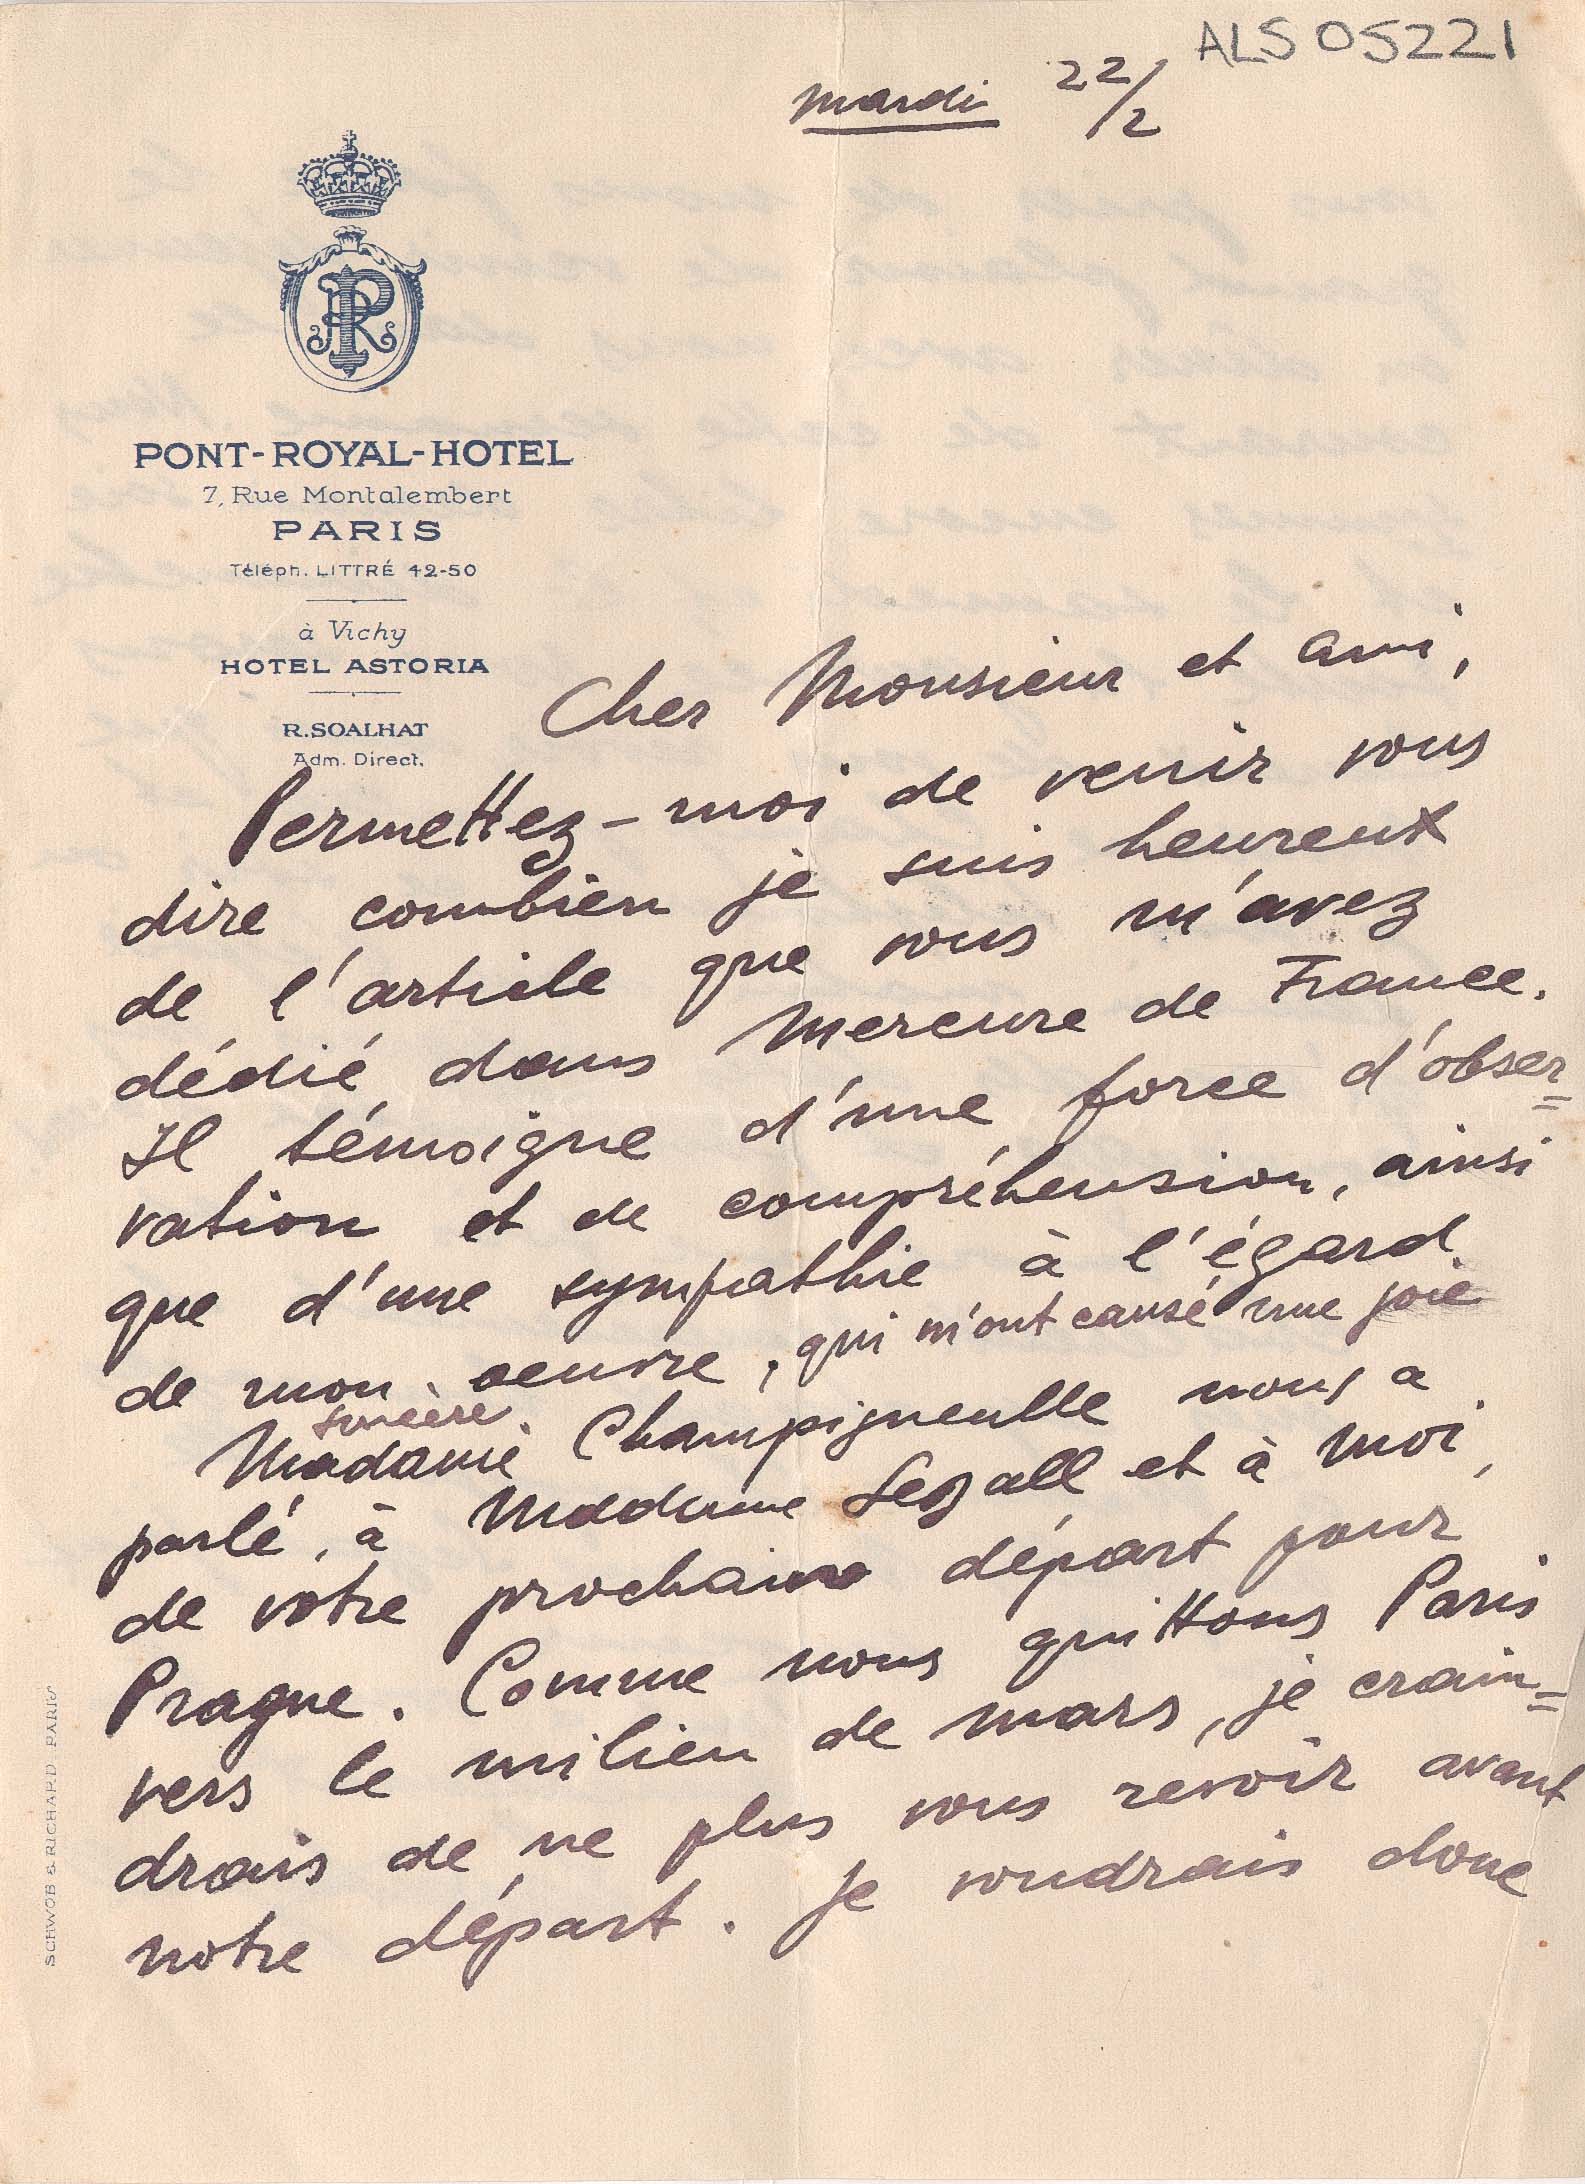 ALS 05221
mardi 22/2
PR
PONT-ROYAL-HOTEL
7, Rue Montalembert
PARIS
Téléph. LITTRÉ 42-50
à Vichy
HOTEL ASTORIA
R. SOALHAT
Adm. Direct.
Cher Monsieur et ami,
Permettez-moi de venir vous
dire combien je suis heureux
de l'article que vous m'avez
dédié dans Mercure de France.
Il témoigne d'une force d'obser=
vation et de compréhension, ainsi
que d'une sympathie à l'égard
de mon oeuvre, qui m'ont causé une joie
sincère.
Madame Champigneulle nous a
parlé, à Madame Segall et à moi,
de votre prochain départ pour
Prague. Comme nous quittons Paris
vers le milieu de mars, je crain=
drais de ne plus vous revoir avant
notre départ. Je voudrais donc
SCHWOB & RICHARD PARIS